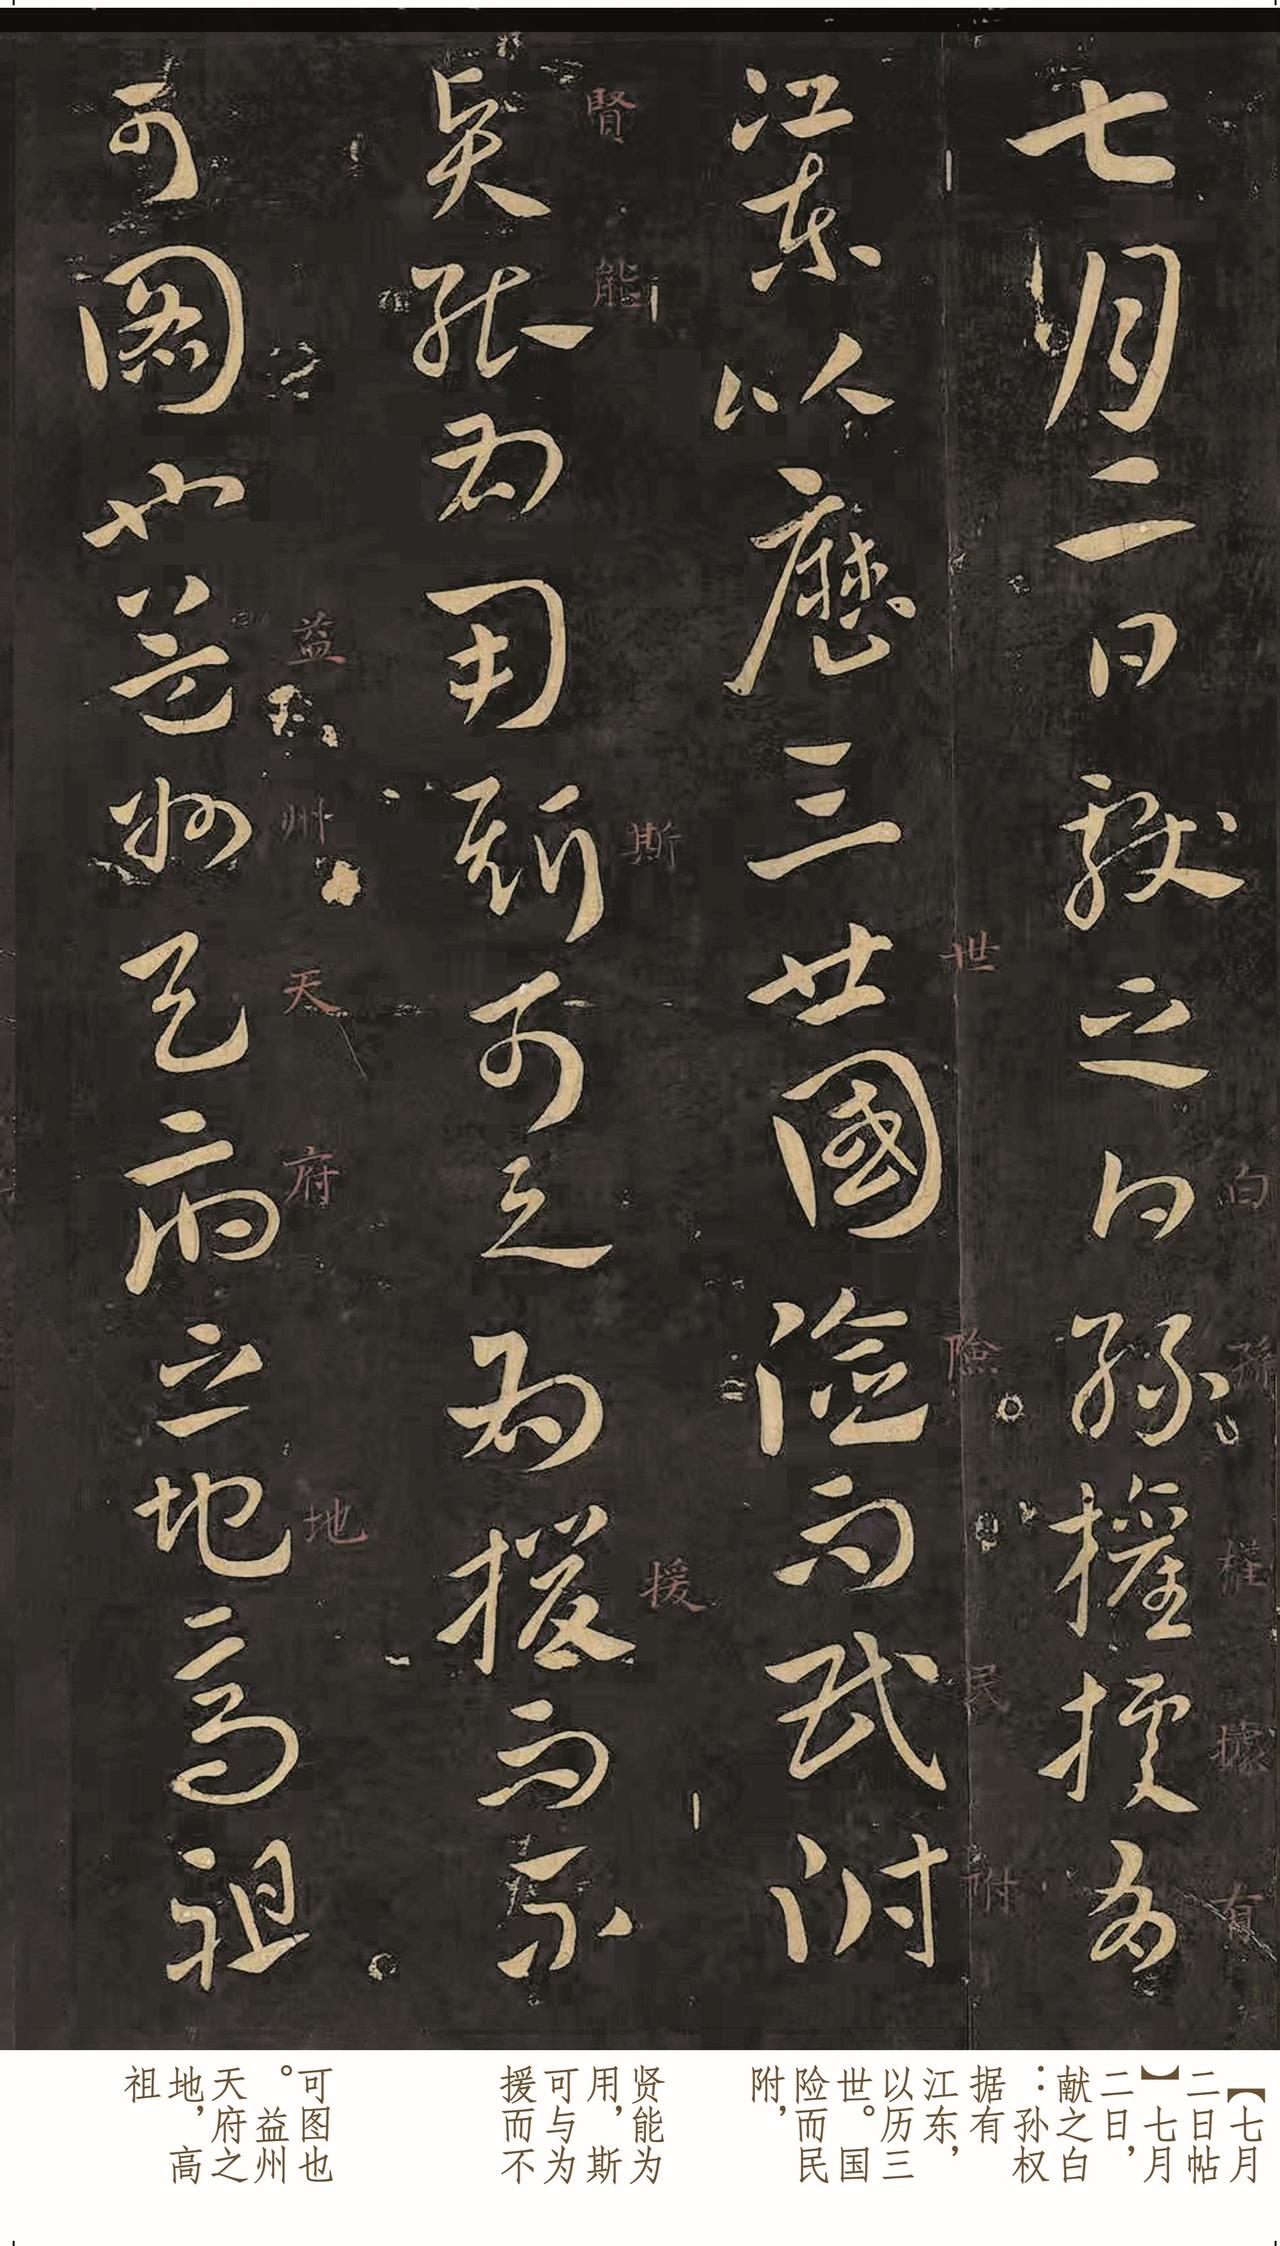 七月二日献之白孫權據有
江東以歷三世國險而民附
賢能為用斯可与為援而不
可圖也益州天府之地高祖
白
孫
權
據
有
世
險
民
附
賢
能
斯
援
益
州
天
府
地
【七月
二日帖
】七月
二日，
献之白
：孙权
据有
江东，
以历三
世。国
险而民
附，
贤能为
用，斯
可与为
援而不
可图也
。益州
天府之
地，高
祖